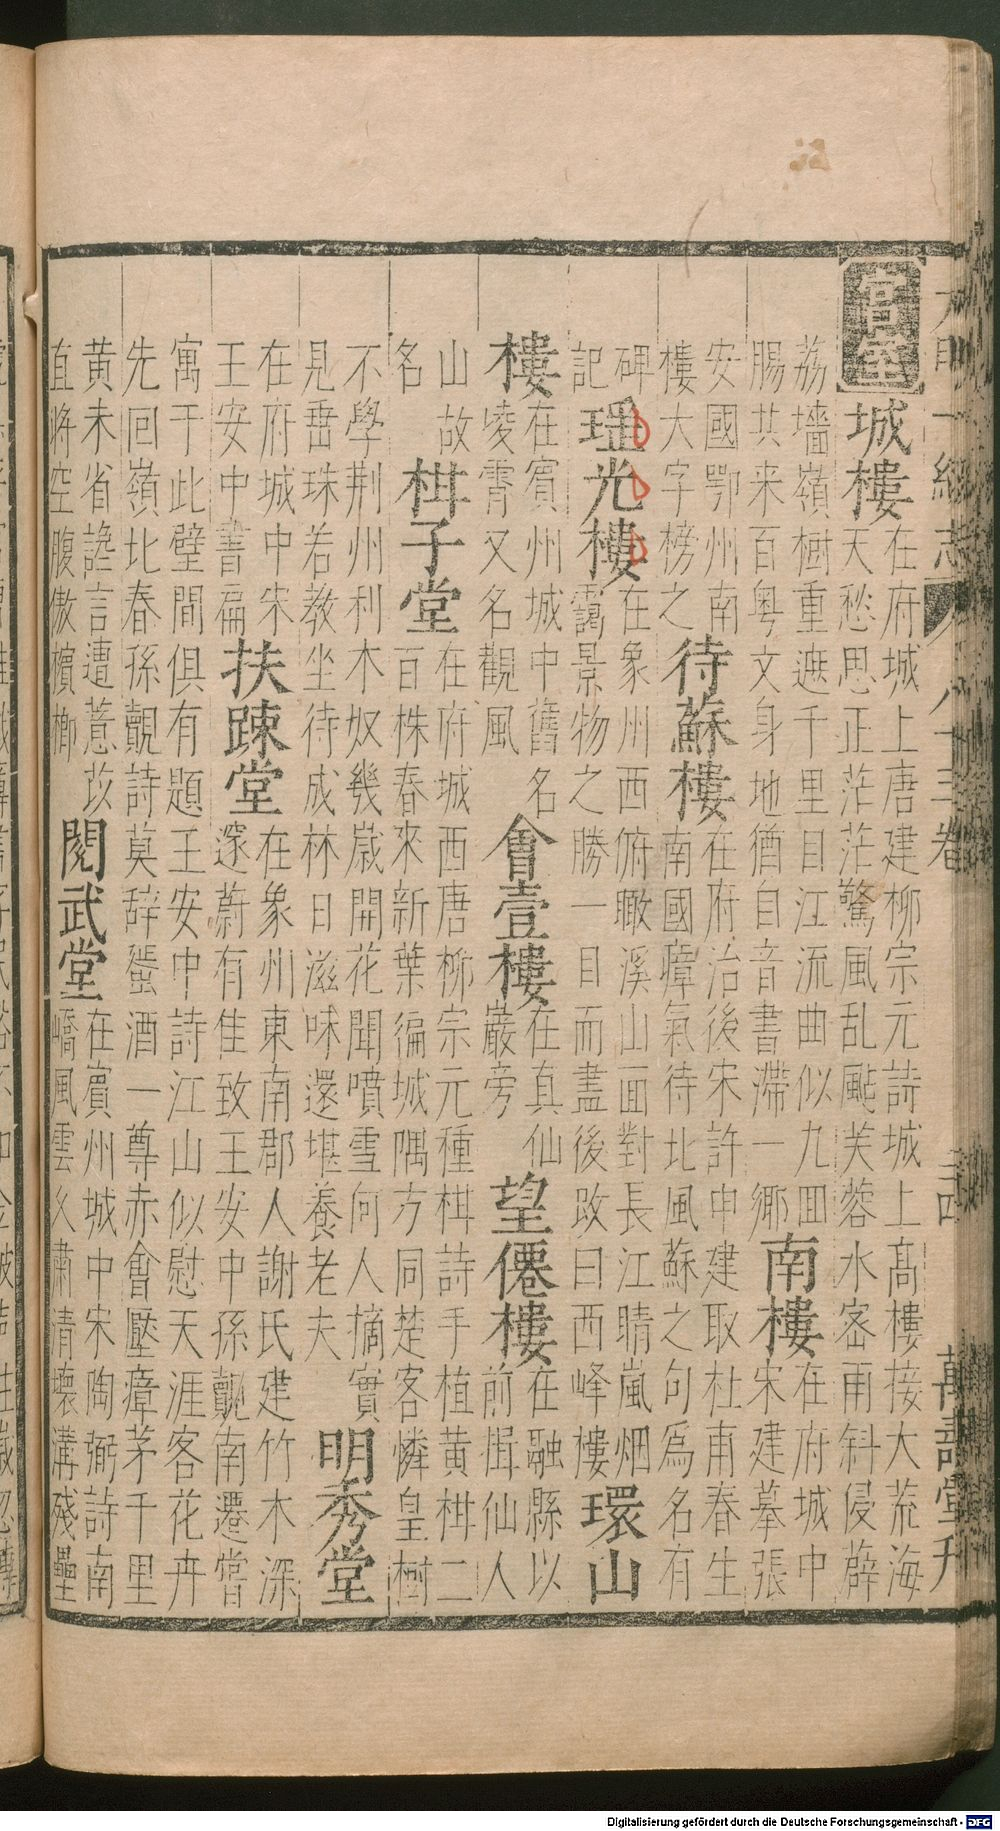 大明一統志 八十三卷 萬壽堂刋
宮室
城樓
在府城上唐建柳宗元詩城上髙樓接大荒海
天愁思正茫茫驚風乱颭芙蓉水宻雨斜侵薜
荔墻嶺樹重遮千里目江流曲似九囬
腸共来百粤文身地猶自音書滯一鄊
南樓
在府城中
宋建摹張
安國鄂州南
樓大字榜之
待蘇樓
在府治後宋許申建取杜甫春生
南國瘴氣待北風蘇之句爲名有
碑
記
瑶光樓
在象州西俯瞰溪山面對長江晴嵐烟
靄景物之勝一目而盡後改曰西峰樓
環山
樓
在賔州城中舊名
凌霄又名觀風
會壹樓
在真仙
巖旁
望僊樓
在融縣以
前揖仙人
山故
名
柑子堂
在府城西唐柳宗元種柑詩手植黄柑二
百株春來新葉徧城隅方同楚客憐皇樹
不學荆州利木奴幾嵗開花聞噴雪何人摘實
見垂珠若教坐待成林日滋味還堪養老夫
明秀堂
在府城中宋
王安中書扁
扶踈堂
在象州東南郡人謝氏建竹木深
邃蔚有佳致王安中孫覿南遷嘗
寓于此壁間俱有題王安中詩江山似慰天涯客花卉
先回嶺北春孫覿詩莫辞蜑酒一尊赤會壓瘴茅千里
黄未省讒言遭薏苡
直將空腹傲檳榔
閱武堂
在賔州城中宋陶弼詩南
嶠風雲乆肅清壊溝殘壘
Digitalisierung gefördert durch die Deutsche Forschungsgemeinschaft - DFG